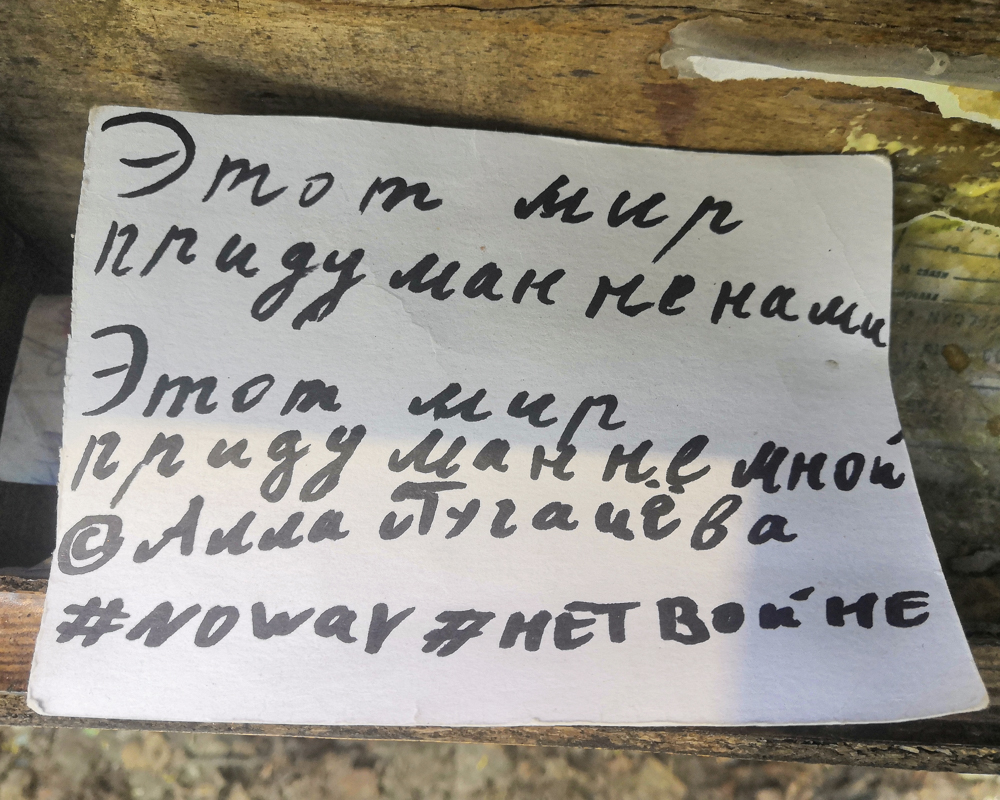 Этот мир
придуман не нами
Этот мир
придуман не мной
© Алла Пугачёва
#NOWAY #НЕТ ВОЙНЕ